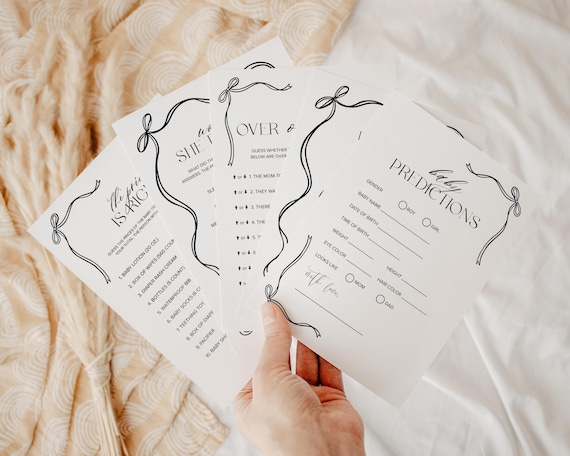 the price
IS RIG
GUESS THE PRICES OF THE BABY
1. BABY LOTION (20 OZ)
2. BOX OF WIPES (560 COUN
3. DIAPER RASH CREAM
4. BOTTLES (5 COUNT)
5. WATERPROOF BIB
6. BABY SOCKS (6 C
7. TEETHING TOY
8. BOX OF DIAPE
9. PACIFIER
10. BABY SH
SHE
WHAT DID TH
ANSWERS. THE PE
OVER
GUESS WHETHER
BELOW ARE OVER
or 1. THE MOM T
or 2. THEY WA
or 3. THERE
or 4. THE
or 5.
or
baby
PREDICTIONS
GENDER BOY GIRL
BABY NAME
DATE OF BIRTH
TIME OF BIRTH
WEIGHT HEIGHT
EYE COLOR HAIR COLOR
LOOKS LIKE MOM DAD
with love,